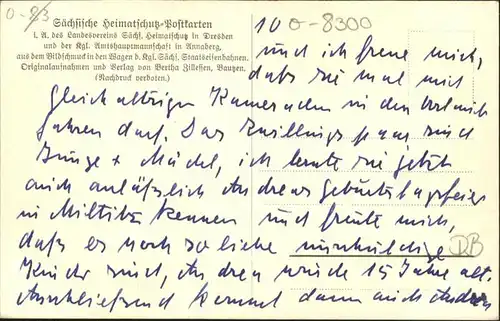 0-8/3
Sächsische Heimatschutz-Postkarten
i. A. des Landesvereins Sächs. Heimatschutz in Dresden
und der Kgl. Amtshauptmannschaft in Annaberg,
aus dem Bildschmuck in den Wagen d. Kgl. Sächs. Staatseisenbahnen.
Originalaufnahmen und Verlag von Bertha Zillessen, Bautzen.
(Nachdruck verboten.)
10 0-8300
und ich freue mich,
daß sie mal mit
gleichaltrigen Kameraden in den Urlaub
fahren darf. Das Zwillingspaar sind
Junge + Mädel, ich lernte sie jetzt
auch anläßlich Andreas Geburtstagsfeier
in Miltitz kennen und freute mich,
daß es noch so liebe unschuldige
Kinder sind, Andrea wurde 15 Jahre alt.
Anschließend kommt dann auch Andrea
DB